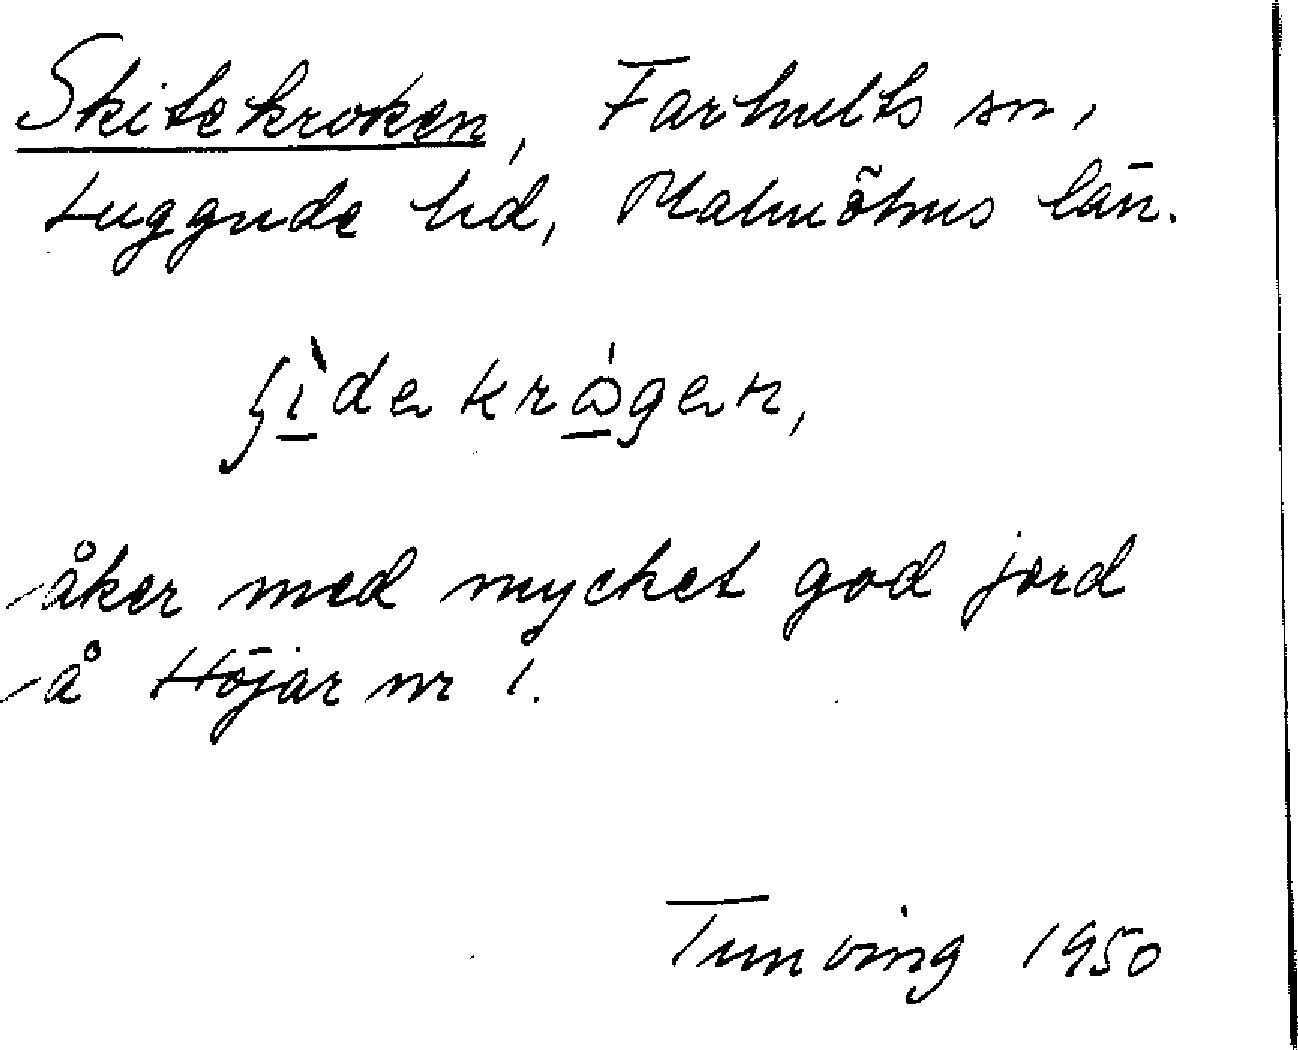 Skitekroken, Farhults sn,
Luggude hd, Malmöhus län.
ʃì̠dekrɷ̠́gen,
åker med mycket god jord
å Höjar nr 1.
Tunving 1950